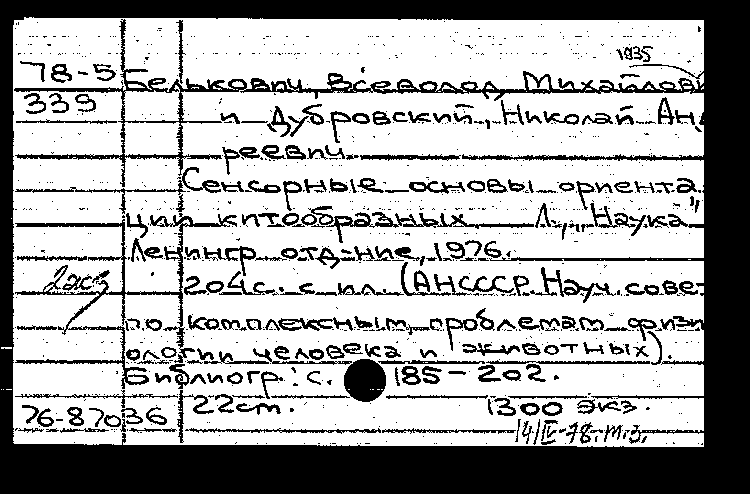 1935
78-5 Белькович, Всеволод Михайлови
339
и Дубровский, Николай Анд
реевич.
Сенсорные основы ориента
ции китообразных. Л., „Наука"
Ленингр. отд-ние, 1976.
2 экз 204 с. с ил. (АН СССР. Науч. сове-
по комплексным проблемам физи
ологии человека и животных).
Библиогр.: с. 185-202.
76-87036 22 см. 1300 экз.
14/IV-78. т.з.